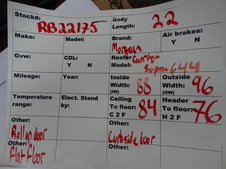 Stock#: RB22175 Body Length: 22
Make: Model: Brand: Morgan Air brakes: Y N
Gvw: CDL: Y N Reefer Carrier Supra 644
Mileage: Year: Inside Width: (IW) 88 Outside Width: (OW) 96
Temperature range: Elect. Stand by: Ceiling To floor: C 2 F 84 Header To floor: H 2 F 76
Other: Roll up door Flat Floor Other: Curbside door Other: